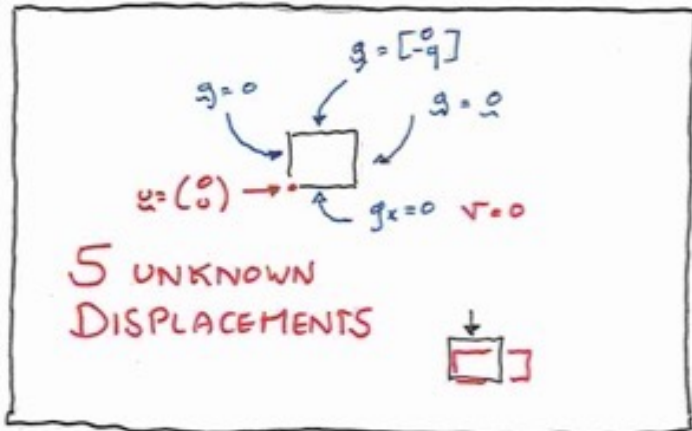 g = [0 -q]
g = 0
g = 0
u = (0 0)
gx = 0 v = 0
5 UNKNOWN
DISPLACEMENTS